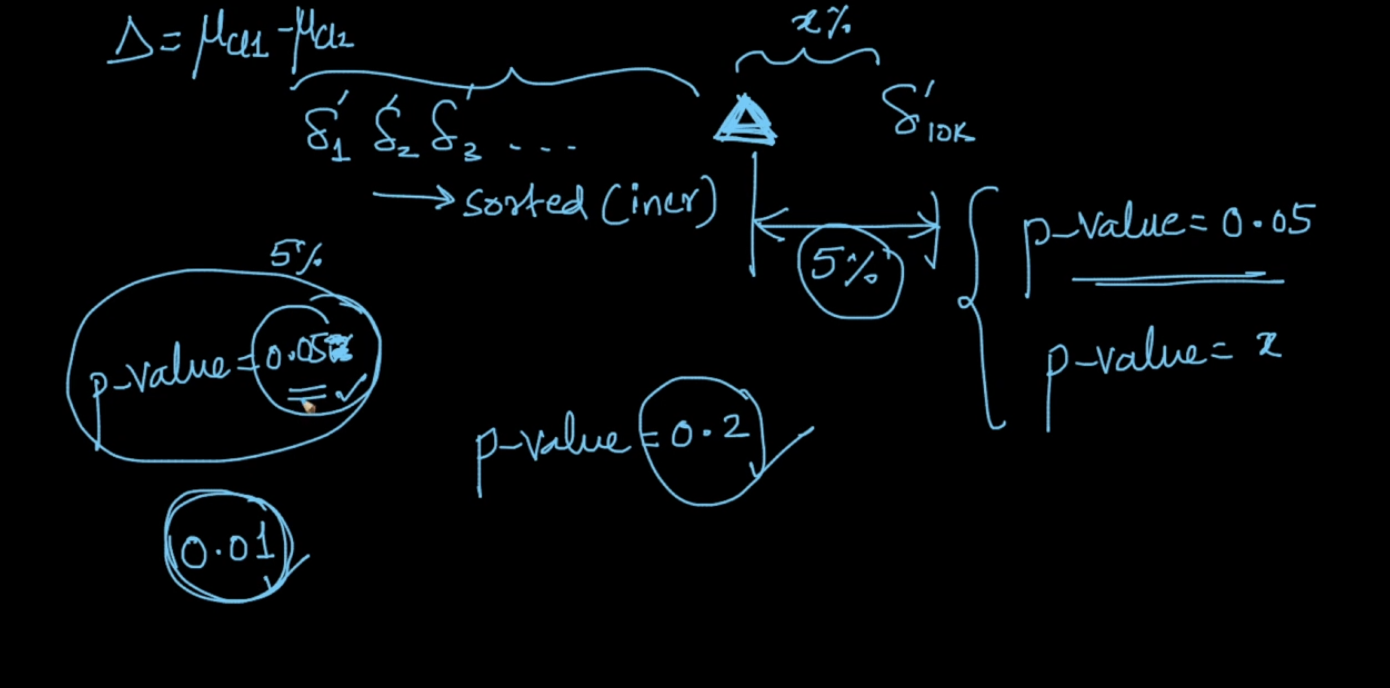 Δ = μcl1 - μcl2
x%
δ'1 δ'2 δ'3 ... Δ δ'10K
→ sorted (incr)
5%
p-value = 0.05
p-value = x
5%
p-value = 0.05
p-value = 0.2
0.01